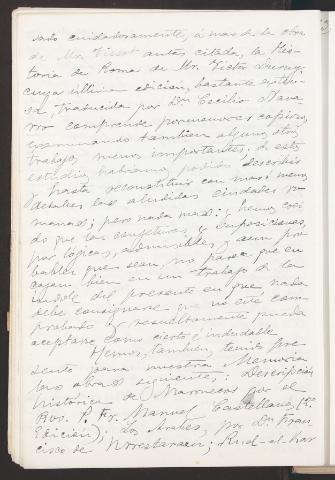 sado cuidadosamente, á mas de la obra
de Mr. Tissot antes citada, la His-
toria de Roma de Mr. Victor Duruy,
cuya última edición, bastante exten-
sa, traducida por Dn. Cecilio Nava-
rro comprende pormenores copiosos,
examinando tambien algunos otros
trabajos menos importantes. De este
estudio, habiamos podido describir
y hasta reconstituir con mas ó menos
detalles las aludidas ciudades ro-
manas; pero nada mas: y hemos crei-
do que las conjeturas y suposiciones,
por lógicas, admisibles y aun pro-
bables que sean, no parece que en-
cajan bien en un trabajo de la
índole del presente en que nada
debe consignarse que no esté com-
probado y resueltamente pueda
aceptarse como cierto é indudable
Hemos, tambien, tenido pre-
sente para nuestra Memoria
las obras siguientes: Descripción
histórica de Marruecos por el
Rvo. P. Fr. Manuel Castellanos (
Edición); Los Arabes, por Dn. Fran-
cisco de Urrestarazu; Rud-el-Kar